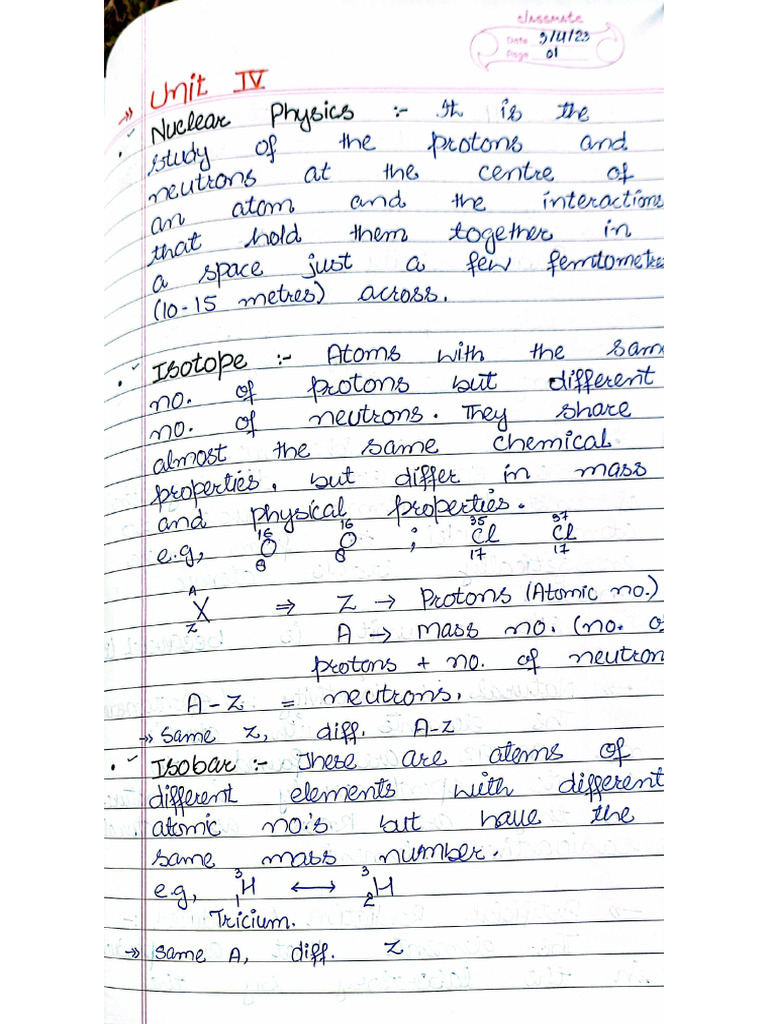 classmate
Date 3/4/23
Page 01
->> Unit IV
Nuclear Physics :- It is the
study of the protons and
neutrons at the centre of
an atom and the interactions
that hold them together in
a space just a few femtometre
(10-15 metres) across.
Isotope :- Atoms with the sam
no. of protons but different
no. of neutrons. They share
almost the same chemical
properties, but differ in mass
and physical properties.
e.g, ¹⁶₈O ¹⁶₈O ; ³⁵₁₇Cl ³⁷₁₇Cl
ᴬ_Z X ⇒ Z → Protons (Atomic no.)
A → Mass no. (no. o
protons + no. of neutron
A-Z = neutrons.
->> Same Z, diff. A-Z
Isobar :- These are atoms of
different elements with different
atomic no.'s but have the
same mass number.
e.g, ³₁H ⟷ ³₂H
Tricium.
->> same A, diff. Z